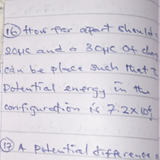 (16) How far apart should
20μC and a 30μC of cha
can be place such that
Potential energy in the
configuration is 7.2×10
(17) A Potential difference